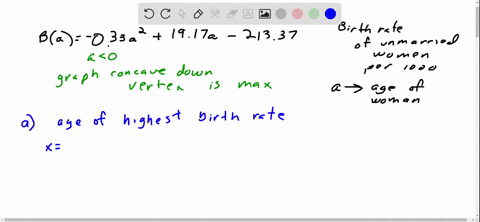 B(a) = -0.33a² + 19.17a - 213.37
a < 0
graph concave down
vertex is max
Birth rate
of unmarried
women
per 1000
a → age of
woman
a) age of highest birth rate
x=